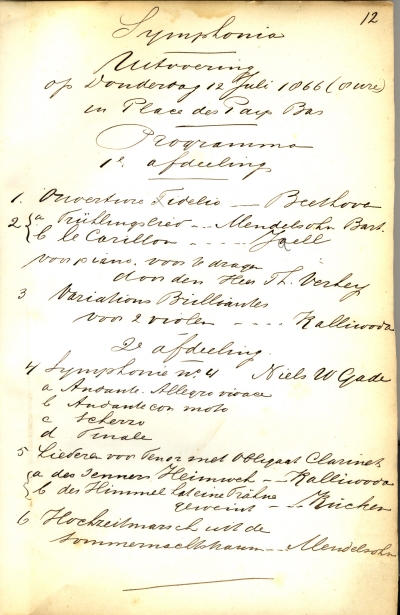 12
Symphonia
Uitvoering
op Donderdag 12 Juli 1866 (8 ure)
in Place des Pays Bas
Programma
1e afdeeling
1. Ouverture Fidelio — Beethoven
2 { a Frühlingslied - - Mendelsohn Bart.
b le Carillon - - - - Jaell
voor piano. voor te dragen
door den Heer Th. Verhey
3 Variations Brilliantes
voor 2 violen - - - - Kalliwoda
2e afdeeling.
4 Symphonie no. 4 Niels W Gade
a Andante. Allegro vivace
b Andante con moto
c Scherzo
d Finale
5 Liederen voor Tenor met Obligaat Clarinet
{ a des Senners Heimweh - - Kalliwoda
b des Himmel hat eine Träne
geweint - - - Kücken
6 Hochzeitmarsch uit de
Sommernachtstraum - - Mendelsohn